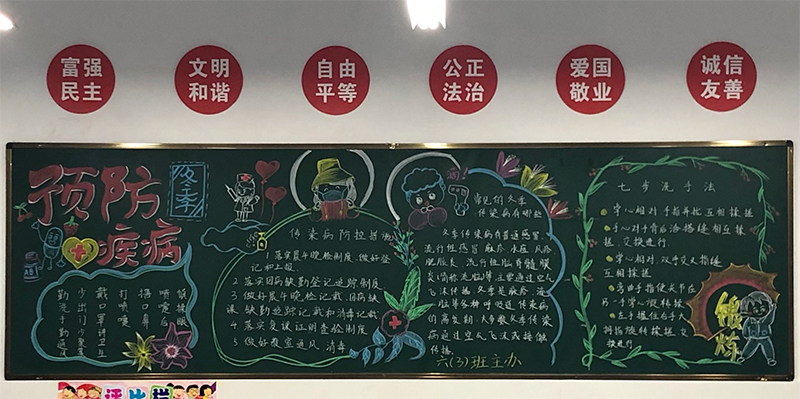 富强
民主
文明
和谐
自由
平等
公正
法治
爱国
敬业
诚信
友善
预防
疾病
冬季
勤洗手勤通风
少出门少聚集
戴口罩讲卫生
打喷嚏
捂口鼻
喷嚏后
慎揉眼
传染病防控措施
1 落实晨午晚检制度，做好登
记和上报
2 落实因病缺勤登记追踪制度
3 做好晨午晚检记载、因病缺
课缺勤追踪记载和消毒记载
4 落实复课证明查验制度
5 做好教室通风消毒
常见的冬季
传染病有哪些
冬季传染病有普通感冒、
流行性感冒、麻疹、水痘、风疹
肥胀炎、流行性脑脊髓膜
炎(简称流脑)等,主要通过空气
飞沫传播。冬季是麻疹、流
脑等各种呼吸道传染病
的高发期。大多数冬季传染
病通过空气飞沫或接触
传播
六(3)班主办
七步洗手法
掌心相对手指并拢互相揉搓
手心对手背后沿指缝相互揉
搓,交换进行
掌心相对,双手交叉指缝
互相揉搓
弯曲手指使关节在
另一手掌心旋转揉
左手握住右手大
拇指旋转揉搓,交
换进行
锻炼
评比栏